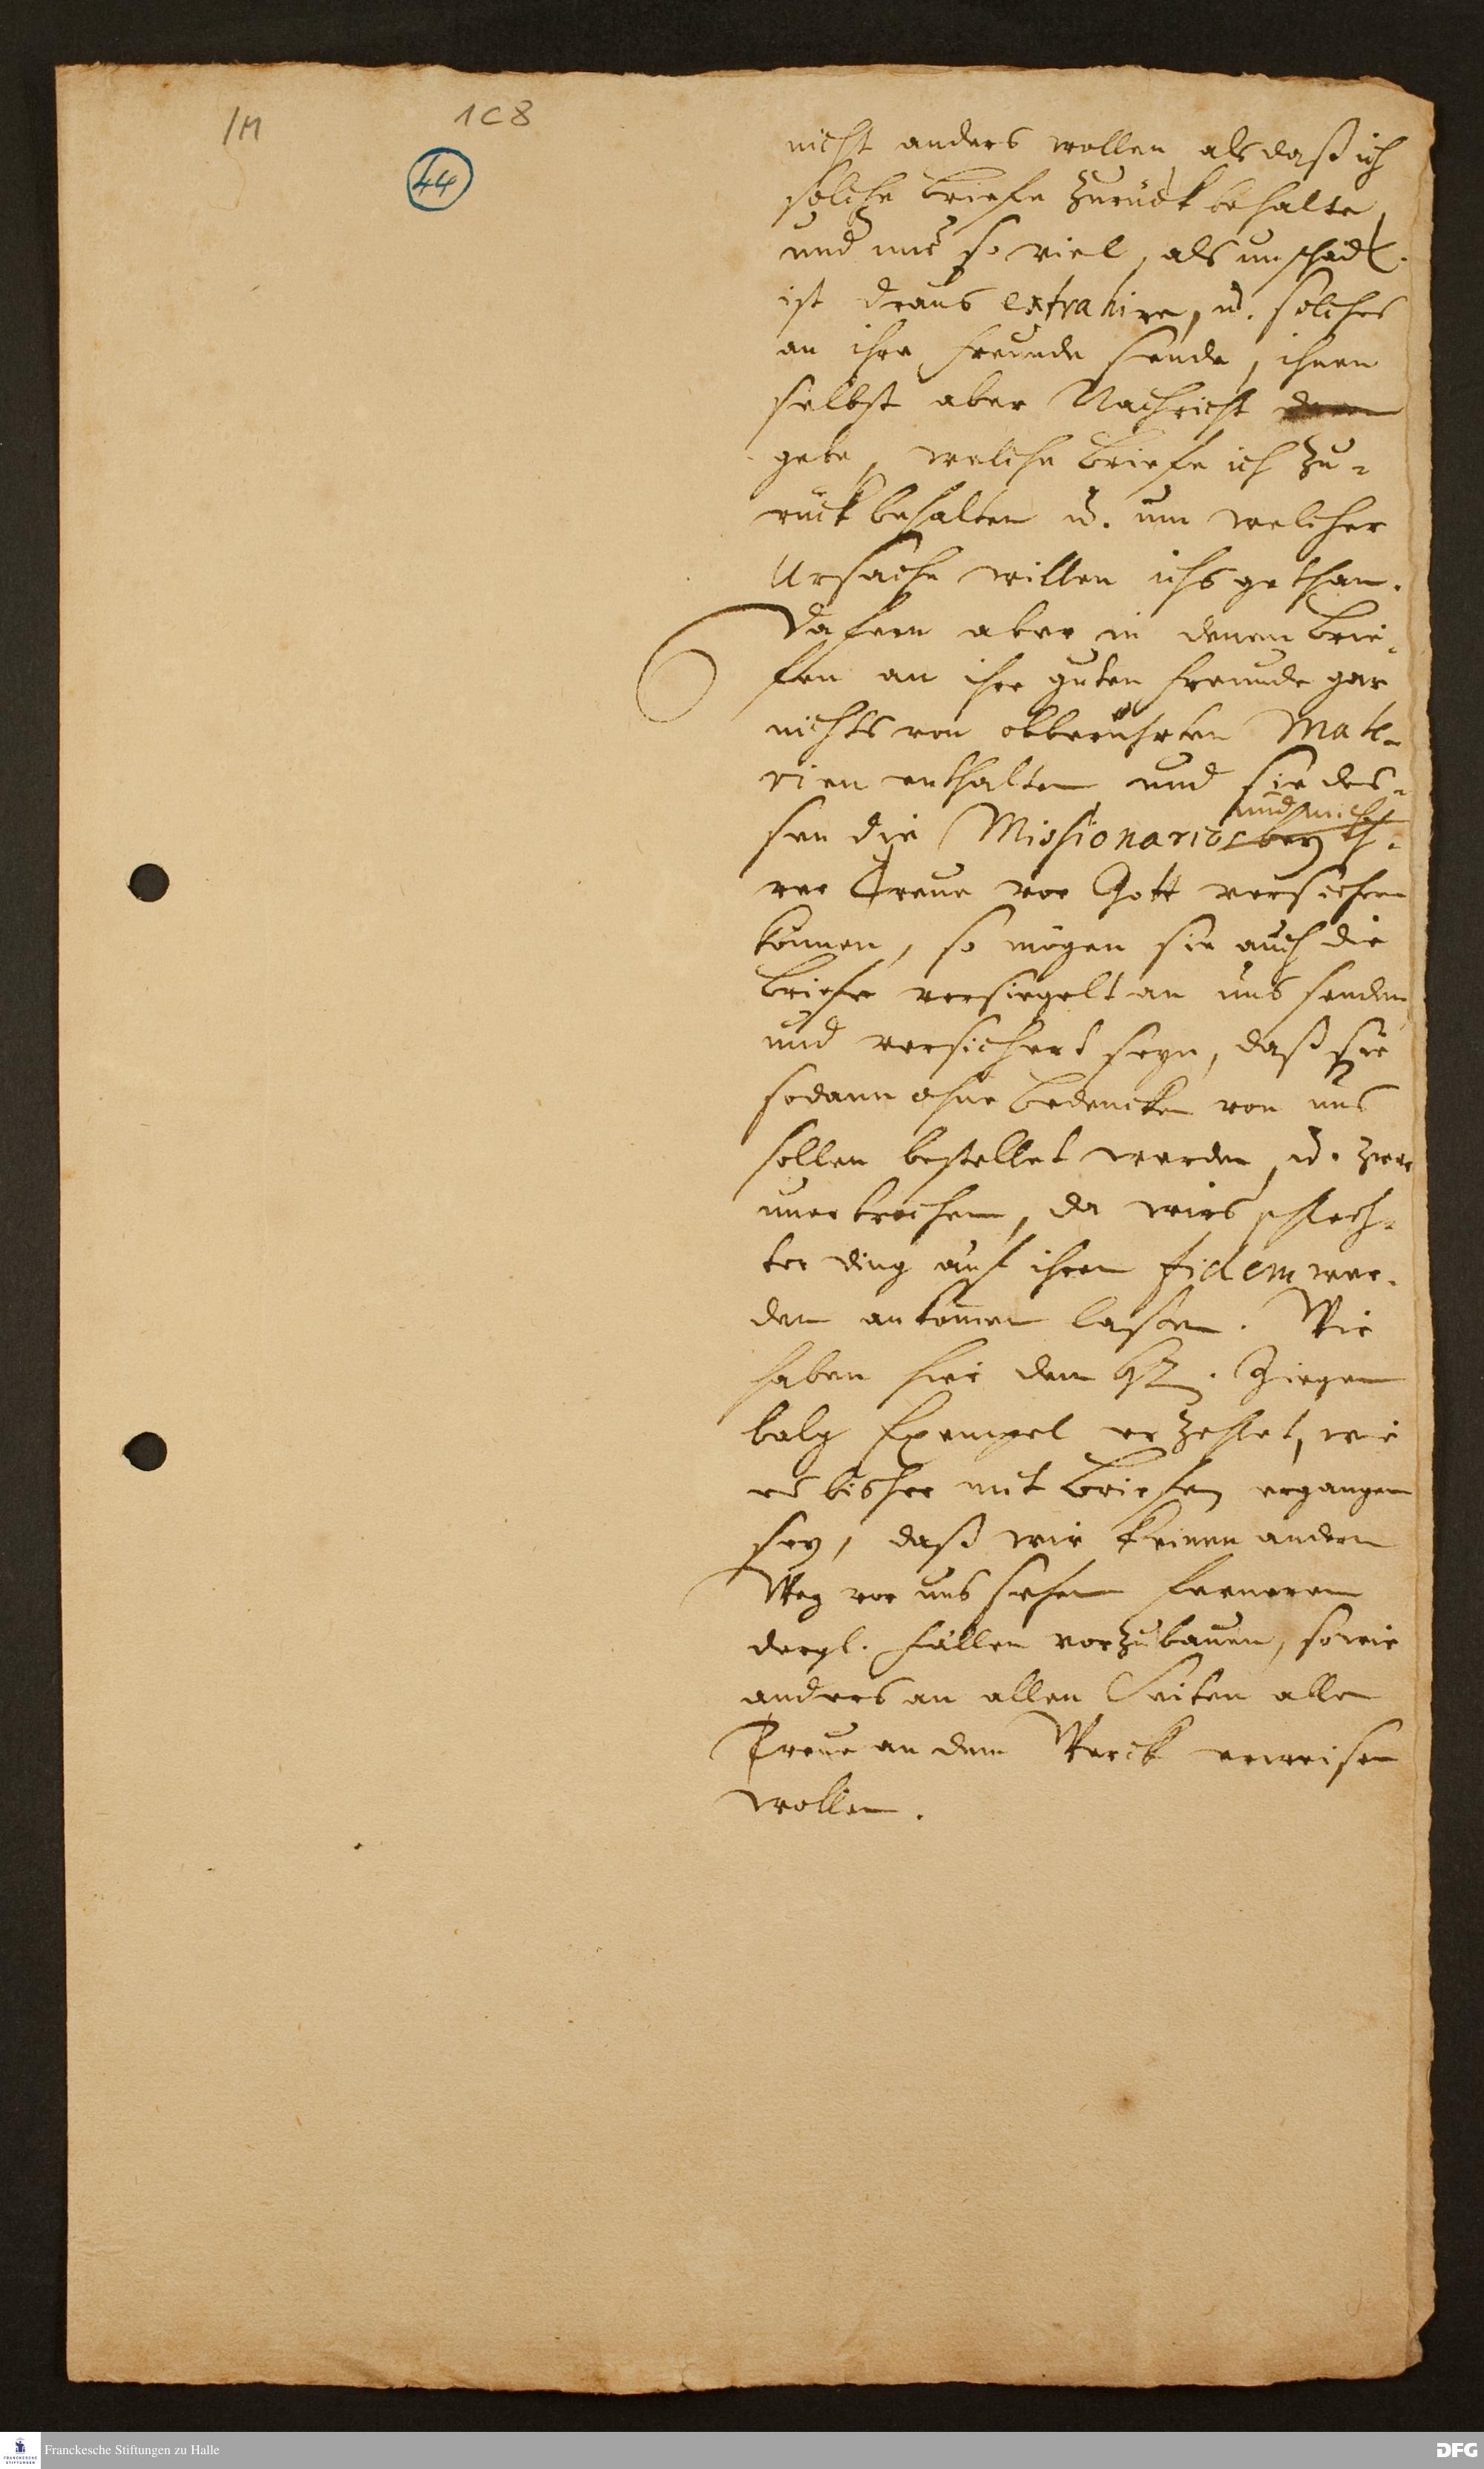 1M 1C8
44
nicht anders wollen, als daß ich
solche briefe zurück behalte,
und nur so viel, als unschädl.
ist draus extrahire, u. solches
an ihre freunde sende, ihnen
selbst aber Nachricht
gebe, welche briefe ich zu-
rück behalten u. um welcher
Ursache willen ichs gethan.
Dafern aber in denen brie-
fen an ihre guten freunde gar
nichts von obberührten Mate-
rien enthalten und sie des-
und mich
sen die Missionarios bey ih-
rer Treue vor Gott versichern
können, so mögen sie auch die
briefe versiegelt an uns senden,
und versichert seyn, daß sie
sodann ohne bedencken von uns
sollen bestellet werden, u. zwar
unerbrochen, da wirs schlech-
ter ding auf ihren fidem wer-
den ankommen lassen. Wir
haben hier dem H. Ziegen
balg Exempel erzehlet, wie
es bisher mit briefen ergangen
sey, daß wir keinen andern
Weg vor uns sehen ferneren
dergl. fällen vorzubauen, so wir
anders an allen Seiten alle
Treue an dem Werck erweisen
wollen.
Franckesche Stiftungen zu Halle
DFG